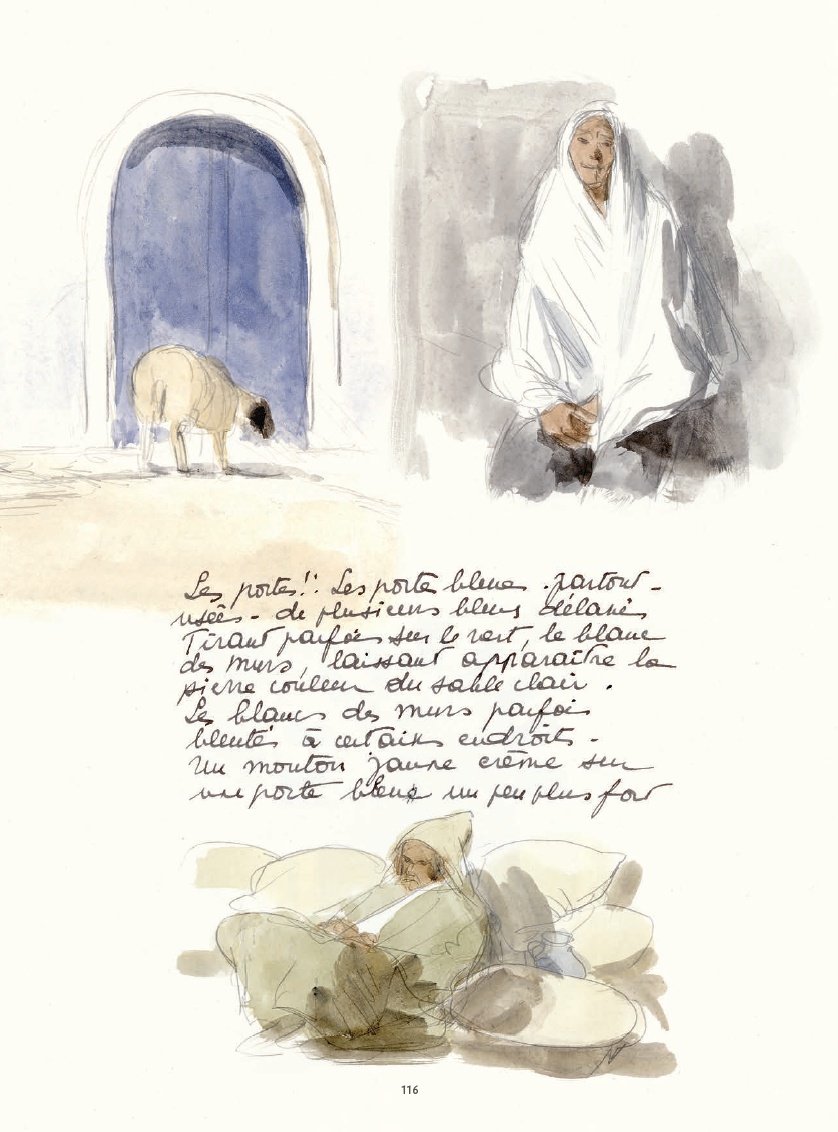 Les portes!! Les porte bleues. partout -
usées - de plusieurs bleus délavés
Tirant parfois sur le vert, le blanc
des murs, laissant apparaître la
pierre couleur du sable clair.
Les blancs des murs parfois
bleutés à certains endroits -
Un mouton jaune crème sur
une porte bleue un peu plus fort
116